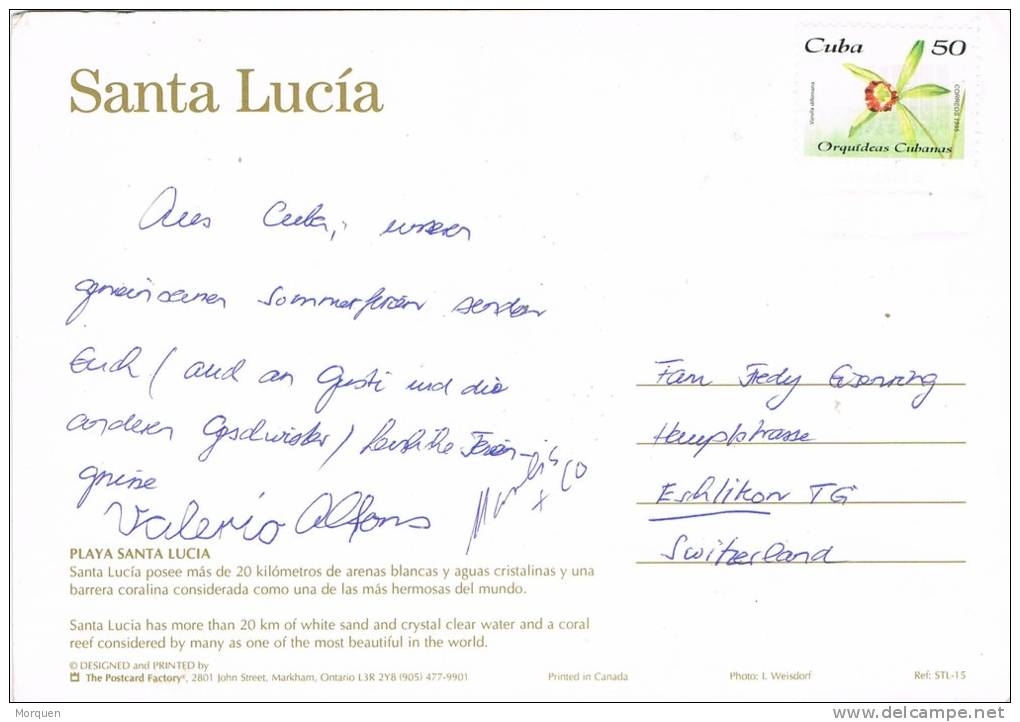 Santa Lucía
Cuba 50
CORREOS 1995
Orquídeas Cubanas
Aus Cuba, unseren
gemeinsamen Sommerferien senden
Euch / auch an Gusti und die
anderen Geschwister / herzliche Ferien-
grüsse
Valerio Alfons
+ Co
Fam Fredy
Hauptstrasse
Eshlikon TG
Switzerland
PLAYA SANTA LUCIA
Santa Lucía posee más de 20 kilómetros de arenas blancas y aguas cristalinas y una
barrera coralina considerada como una de las más hermosas del mundo.
Santa Lucia has more than 20 km of white sand and crystal clear water and a coral
reef considered by many as one of the most beautiful in the world.
© DESIGNED and PRINTED by
The Postcard Factory®, 2801 John Street, Markham, Ontario L3R 2Y8 (905) 477-9901
Printed in Canada
Photo: I. Weisdorf
Ref: STL-15
Morquen
www.delcampe.net